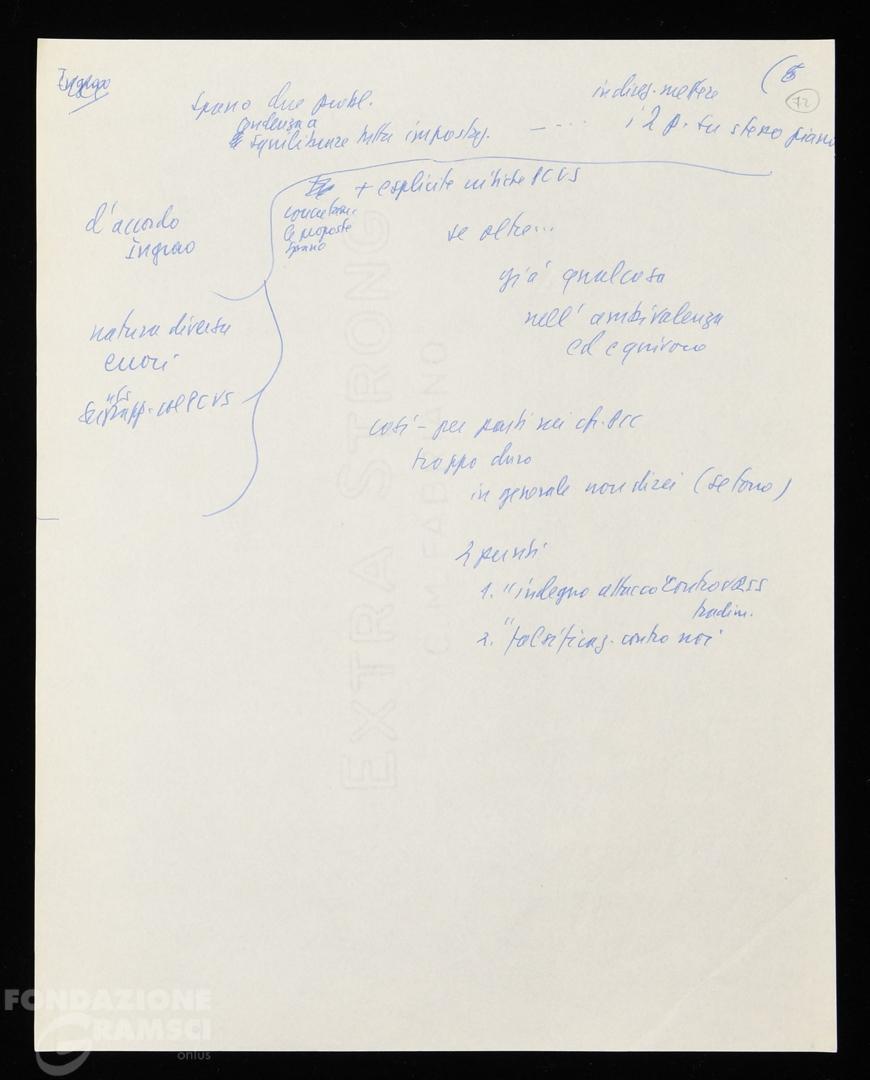 Ingrao
(5
72
Spano due probl.
tendenza a
equilibrare tutta impostaz.
indireg. mettere
i 2 p. su stesso piano
+ esplicite critiche PCUS
concretam.
le proposte
Spano
se oltre...
d'accordo
Ingrao
già qualcosa
nell'ambivalenza
ed equivoco
natura diversa
errori
rapp. col PCUS
così - per
troppo duro
in generale non direi (se tono)
2 punti
1. "indegno attacco" contro URSS
tradim.
2. "falsificaz. contro noi"
EXTRA STRONG
C.M. FABRIANO
FONDAZIONE
GRAMSCI
onlus